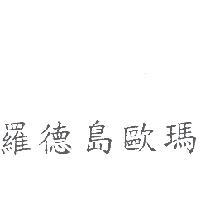 羅德島歐瑪